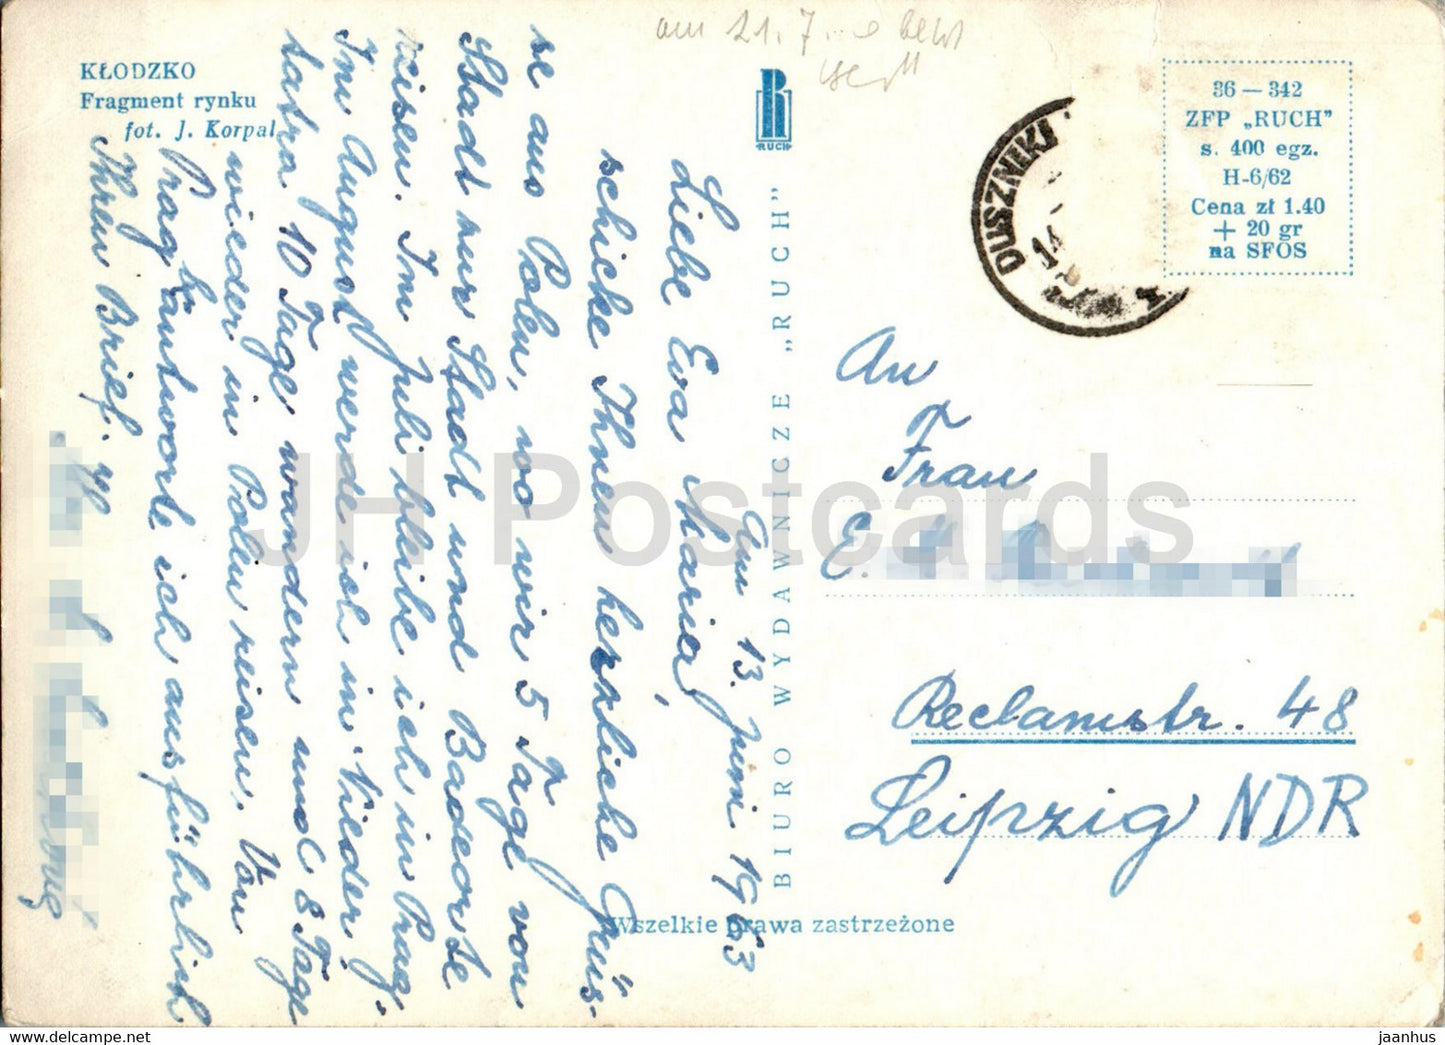 KŁODZKO
Fragment rynku
fot. J. Korpal
RUCH
BIURO WYDAWNICZE „RUCH”
Wszelkie prawa zastrzeżone
36 — 342
ZFP „RUCH”
s. 400 egz.
H-6/62
Cena zł 1.40
+ 20 gr
na SFOS
DUSZNIKI
am 21. 7.
Am 13. Juni 1963
Liebe Eva Maria,
schicke Ihnen herzliche Grüs-
se aus Polen, wo wir 5 Tage von
Stadt zur Stadt und Badeorte
reisen. Im Juli bleibe ich in Prag,
Im August werde ich in Nieder
tatra 10 Tage wandern und 8 Tage
wieder in Polen reisen. Von
Prag beantworte ich ausführlich
Ihren Brief.
An
Frau
E.
Reclamstr. 48
Leipzig NDR
JH Postcards
jaanhus - https://www.delcampe.net